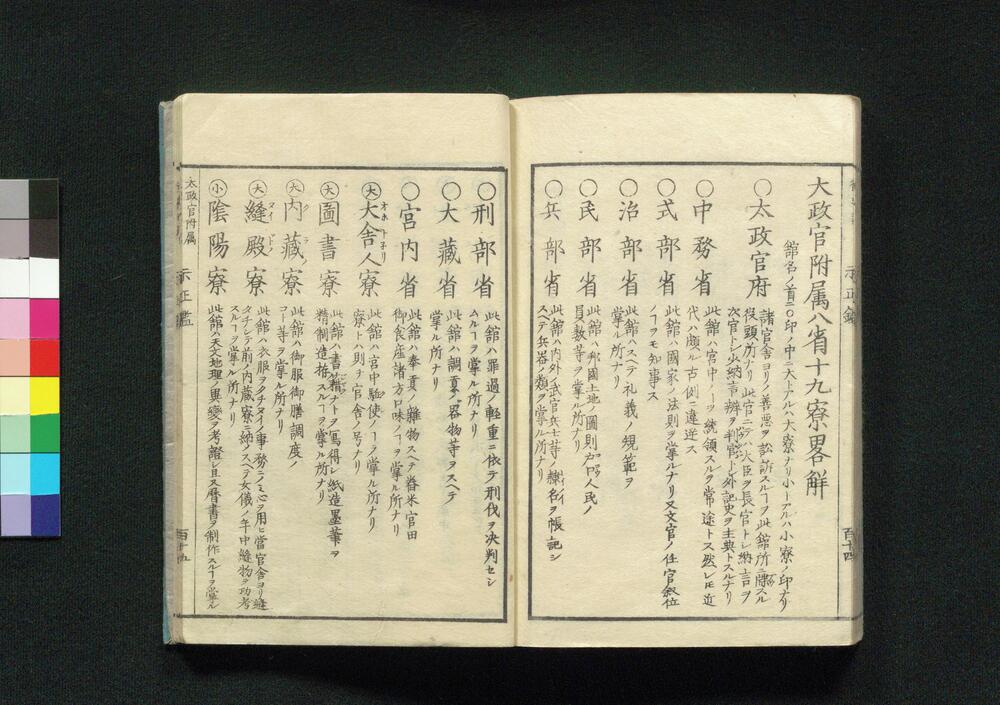 大政官附属八省十九寮畧解
舘名ノ首ニ〇印ノ中ニ大トアルハ大寮ナリ小トアルハ小寮ノ印ナリ
〇太政官府
諸官舎ヨリノ善悪ヲ訟訴スルヿヲ此舘所ニ傳スル
役頭所ナリ此官ニテハ大臣ヲ長官トシ納言ヲ
次官トシ少納言辨ヲ判官トシ外記史ヲ主典トスルナリ
〇中務省
此舘ハ宮中ノヿヲ統領スルヲ常途トス然レモ近
代ハ頗ル古例ニ違逆ス
〇式部省
此舘ハ國家ノ法則ヲ掌ルナリ又文官ノ任官叙位
ノヿヲモ知事ス
〇治部省
此舘ハスベテ礼義ノ規範ヲ
掌ル所ナリ
〇民部省
此舘ハ邦國土地ノ圖則人民ノ
員数等ヲ掌ル所ナリ
〇兵部省
此舘ハ内外ノ武官兵士等ノ練名ヲ帳記シ
スベテ兵器ノ類ヲ掌ル所ナリ
百十四
〇刑部省
此舘ハ罪過ノ軽重ニ依テ刑伐ヲ决判セシ
ムルヿヲ掌ル所ナリ
〇大藏省
此舘ハ調貢ノ器物等ヲスベテ
掌ル所ナリ
〇宮内省
此舘ハ奉貢ノ雜物スベテ舂米官田
御食産諸方口味ノヿヲ掌ル所ナリ
大 大舎人寮
此舘ハ宮中駈使ノヿヲ掌ル所ナリ
寮トハ則チ官舎ノ号ナリ
大 圖書寮
此舘ハ書籍ナトヲ寫得シ紙造墨筆ヲ
精制造揩スルヿヲ掌ル所ナリ
大 内藏寮
此舘ハ御服御膳調度ノ
ヿ等ヲ掌ル所ナリ
大 縫殿寮
此舘ハ衣服ヲタチヌイノ事務ニノミ心ヲ用ヒ當官舎ヨリ縫
タチシテ前ノ内藏寮ニ納ムスベテ女儀ノ年中縫物ヲ功考
スルヿヲ掌ル所ナリ
小 陰陽寮
此舘ハ天文地理ノ異變ヲ考證シ且又曆書ヲ制作スルヿヲ掌ル
太政官附属
百十五